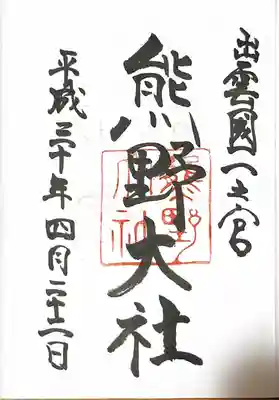 出雲國一之宮
熊野大社
平成三十年四月二十二日